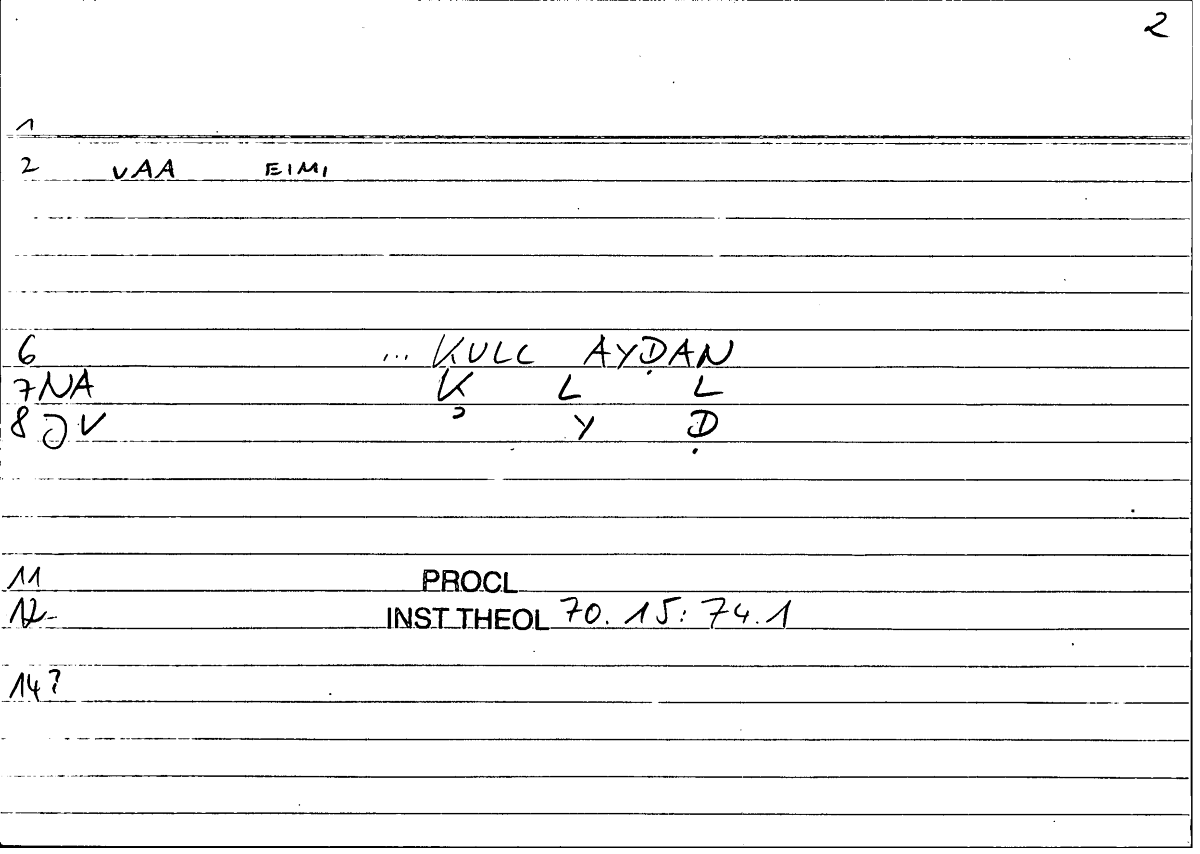 2
1
2 vAA EIMI
6 ... KULL AYḌAN
7 NA K L L
8 JV ʾ Y Ḍ
11 PROCL
12 INST THEOL 70.15: 74.1
14?